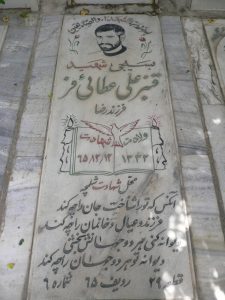 بسیجی شهید
قنبر علی عطائی فر
فرزند رضا
ولادت شهادت
۱۳۴۲ ۶۵/۱۲/۱۲
محل شهادت شلمچه
آنکس که تو را شناخت جان را چه کند
فرزند و عیال و خانمان را چه کند
دیوانه کنی هر دو جهانش بخشی
دیوانه تو هر دو جهان را چه کند
قطعه ۲۹ ردیف ۶۵ شماره ۶